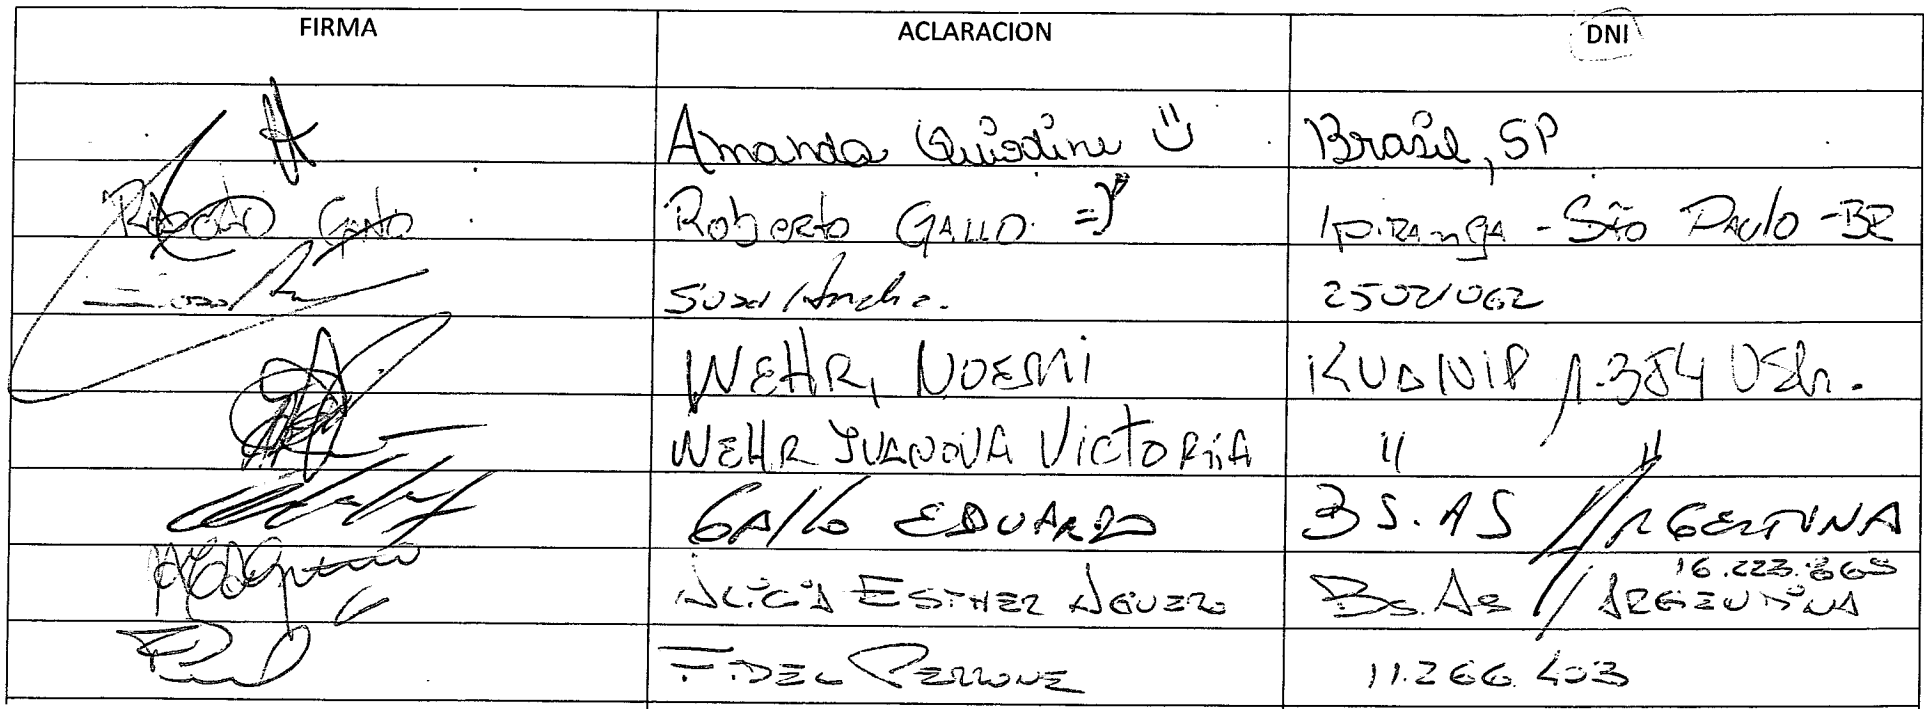 FIRMA ACLARACION DNI
Amanda Brasil, SP
Roberto Gallo Roberto GALLO =) Ipiranga - São Paulo - BR
25021062
WEHR, NOEMI KUANIP 1.354 Ush.
WEHR IVANOVA VICTORIA " "
GAllo EDUARDO BS. AS / ARGENTINA
16.223.865
ALICIA ESTHER AGUERO Bs. As / ARGENTINA
FIDEL PERRONE 11.266.403